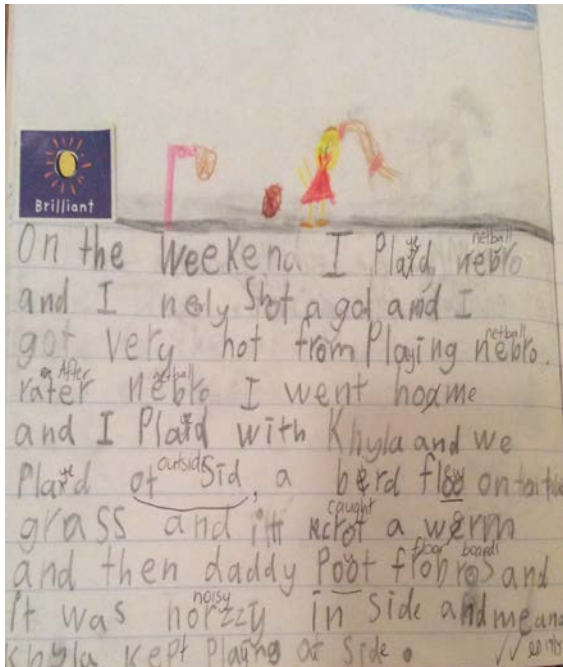 Brilliant
On the weekend I Plaid netball nebro
and I nely Shot a gol and I
got very hot from Playing netball nebro.
After rater netball nebro I went home
and I Plaid with Khyla and we
Plaid outside ot Sid, a berd floo onto the
grass and itt caught crot a werm
and then daddy Poot floor boards flobros and
it was noisy norzzy in Side and me and
Khyla kept Playing ot Side.